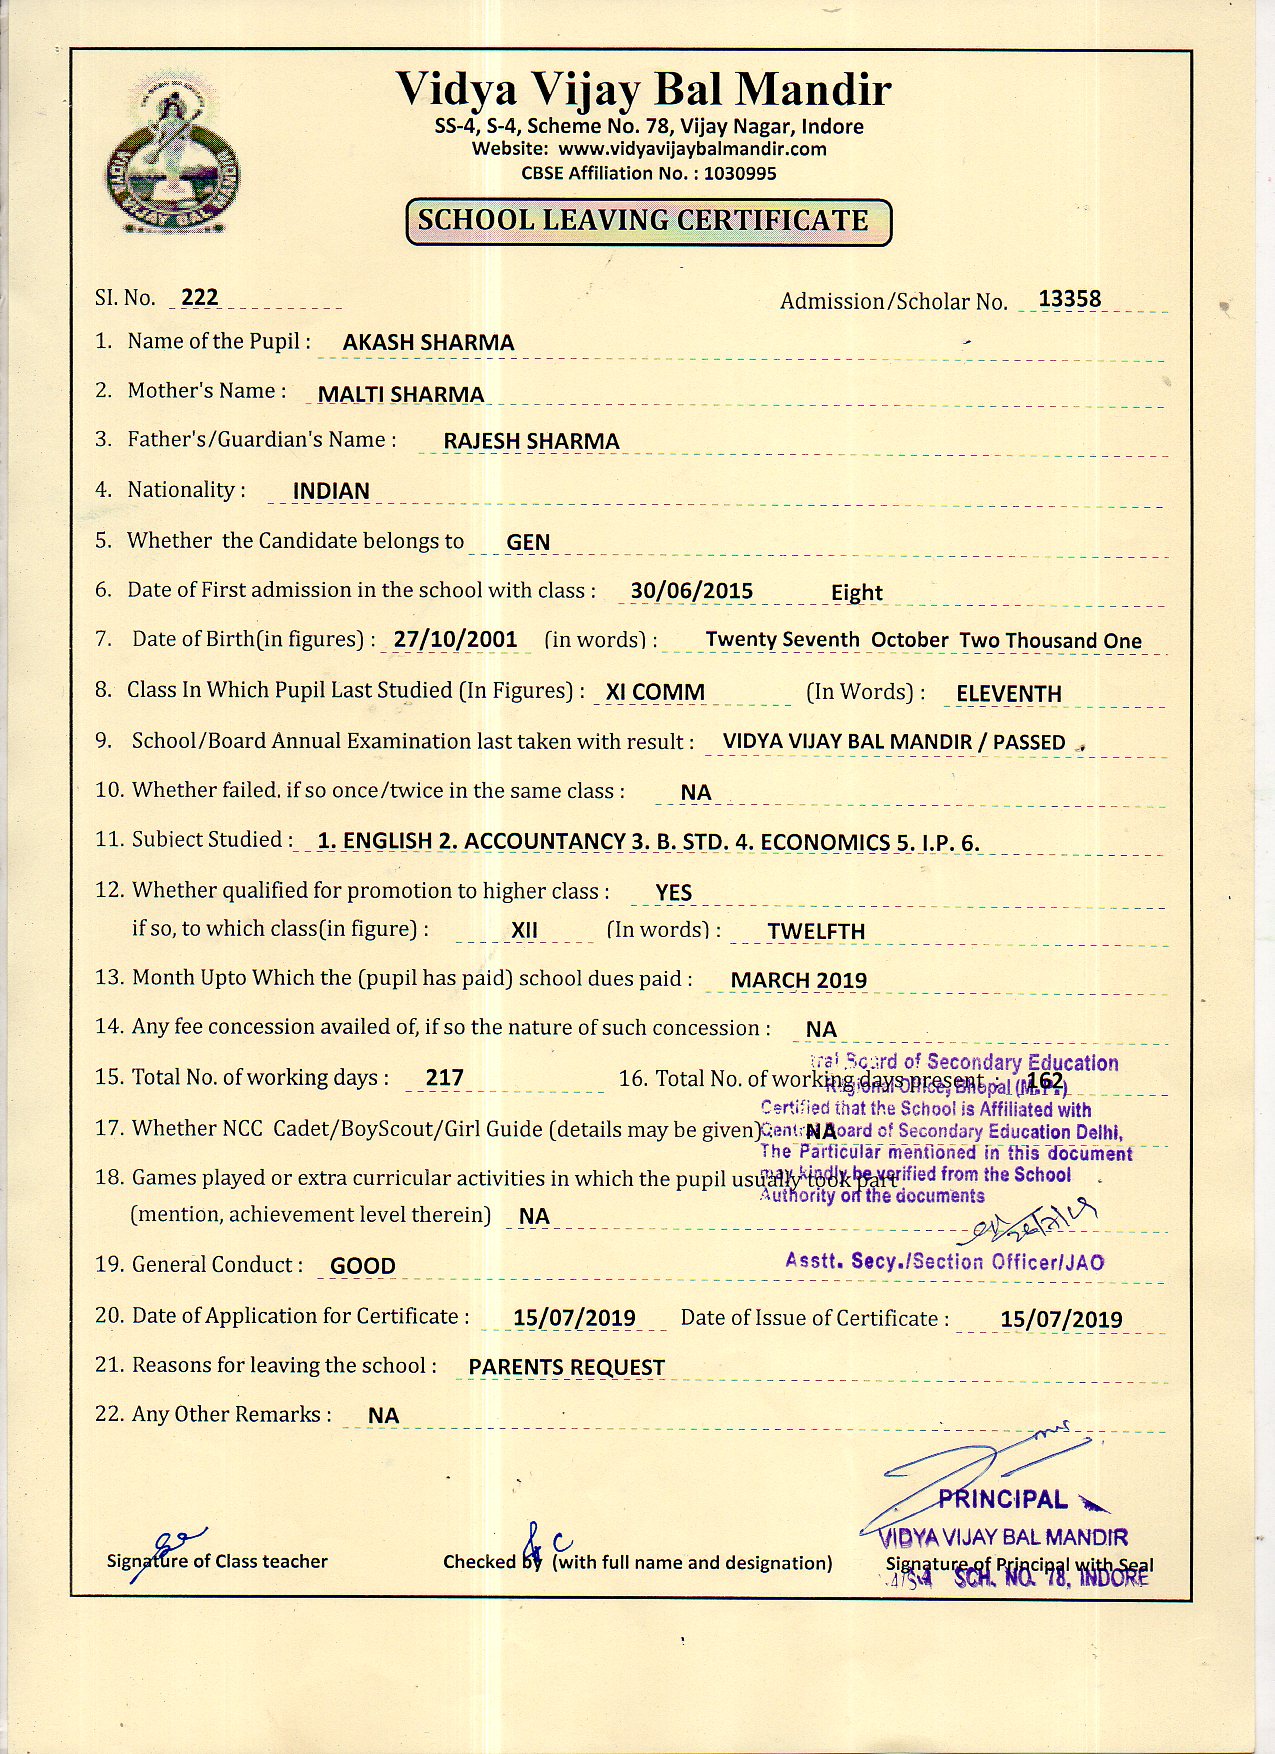 Vidya Vijay Bal Mandir
SS-4, S-4, Scheme No. 78, Vijay Nagar, Indore
Website: www.vidyavijaybalmandir.com
CBSE Affiliation No. : 1030995
VIDYA VIJAY BAL MANDIR
SCHOOL LEAVING CERTIFICATE
SI. No. 222 Admission/Scholar No. 13358
1. Name of the Pupil : AKASH SHARMA
2. Mother's Name : MALTI SHARMA
3. Father's/Guardian's Name : RAJESH SHARMA
4. Nationality : INDIAN
5. Whether the Candidate belongs to GEN
6. Date of First admission in the school with class : 30/06/2015 Eight
7. Date of Birth(in figures) : 27/10/2001 (in words) : Twenty Seventh October Two Thousand One
8. Class In Which Pupil Last Studied (In Figures) : XI COMM (In Words) : ELEVENTH
9. School/Board Annual Examination last taken with result : VIDYA VIJAY BAL MANDIR / PASSED
10. Whether failed. if so once/twice in the same class : NA
11. Subject Studied : 1. ENGLISH 2. ACCOUNTANCY 3. B. STD. 4. ECONOMICS 5. I.P. 6.
12. Whether qualified for promotion to higher class : YES
if so, to which class(in figure) : XII (In words) : TWELFTH
13. Month Upto Which the (pupil has paid) school dues paid : MARCH 2019
14. Any fee concession availed of, if so the nature of such concession : NA
Board of Secondary Education
15. Total No. of working days : 217 16. Total No. of working days present : 162
Regional Office, Bhopal (M.P.)
Certified that the School is Affiliated with
17. Whether NCC Cadet/BoyScout/Girl Guide (details may be given) NA
Central Board of Secondary Education Delhi,
The Particular mentioned in this document
18. Games played or extra curricular activities in which the pupil usually took part
may kindly be verified from the School
Authority on the documents
(mention, achievement level therein) NA
19. General Conduct : GOOD
Asstt. Secy./Section Officer/JAO
20. Date of Application for Certificate : 15/07/2019 Date of Issue of Certificate : 15/07/2019
21. Reasons for leaving the school : PARENTS REQUEST
22. Any Other Remarks : NA
PRINCIPAL
VIDYA VIJAY BAL MANDIR
Signature of Class teacher Checked by (with full name and designation) Signature of Principal with Seal
SCH. NO. 78, INDORE